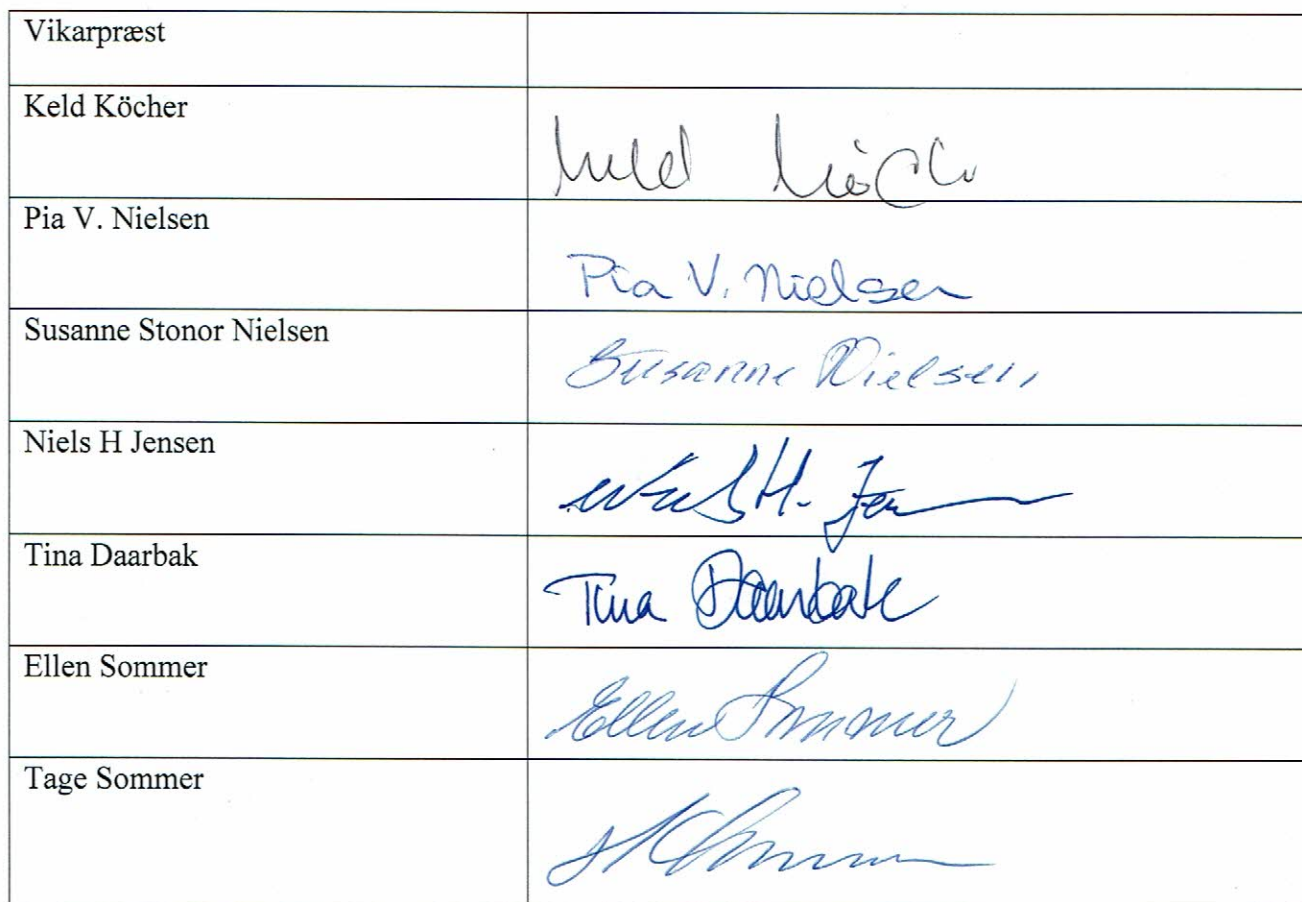 Vikarpræst
Keld Köcher
Keld Köch
Pia V. Nielsen
Pia V. Nielsen
Susanne Stonor Nielsen
Susanne Nielsen
Niels H Jensen
Niels H. Jen
Tina Daarbak
Tina Daarbak
Ellen Sommer
Ellen Sommer
Tage Sommer
Sommer